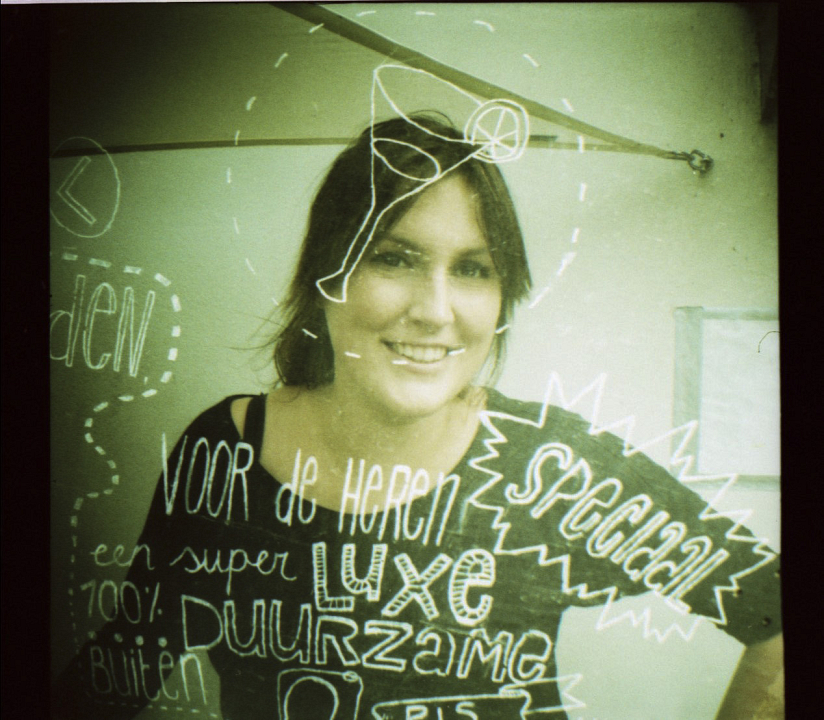 den
VOOR de HEREN
SPECIAAL
een super LuXe
100% DUURZAME
BUITEN
PIS